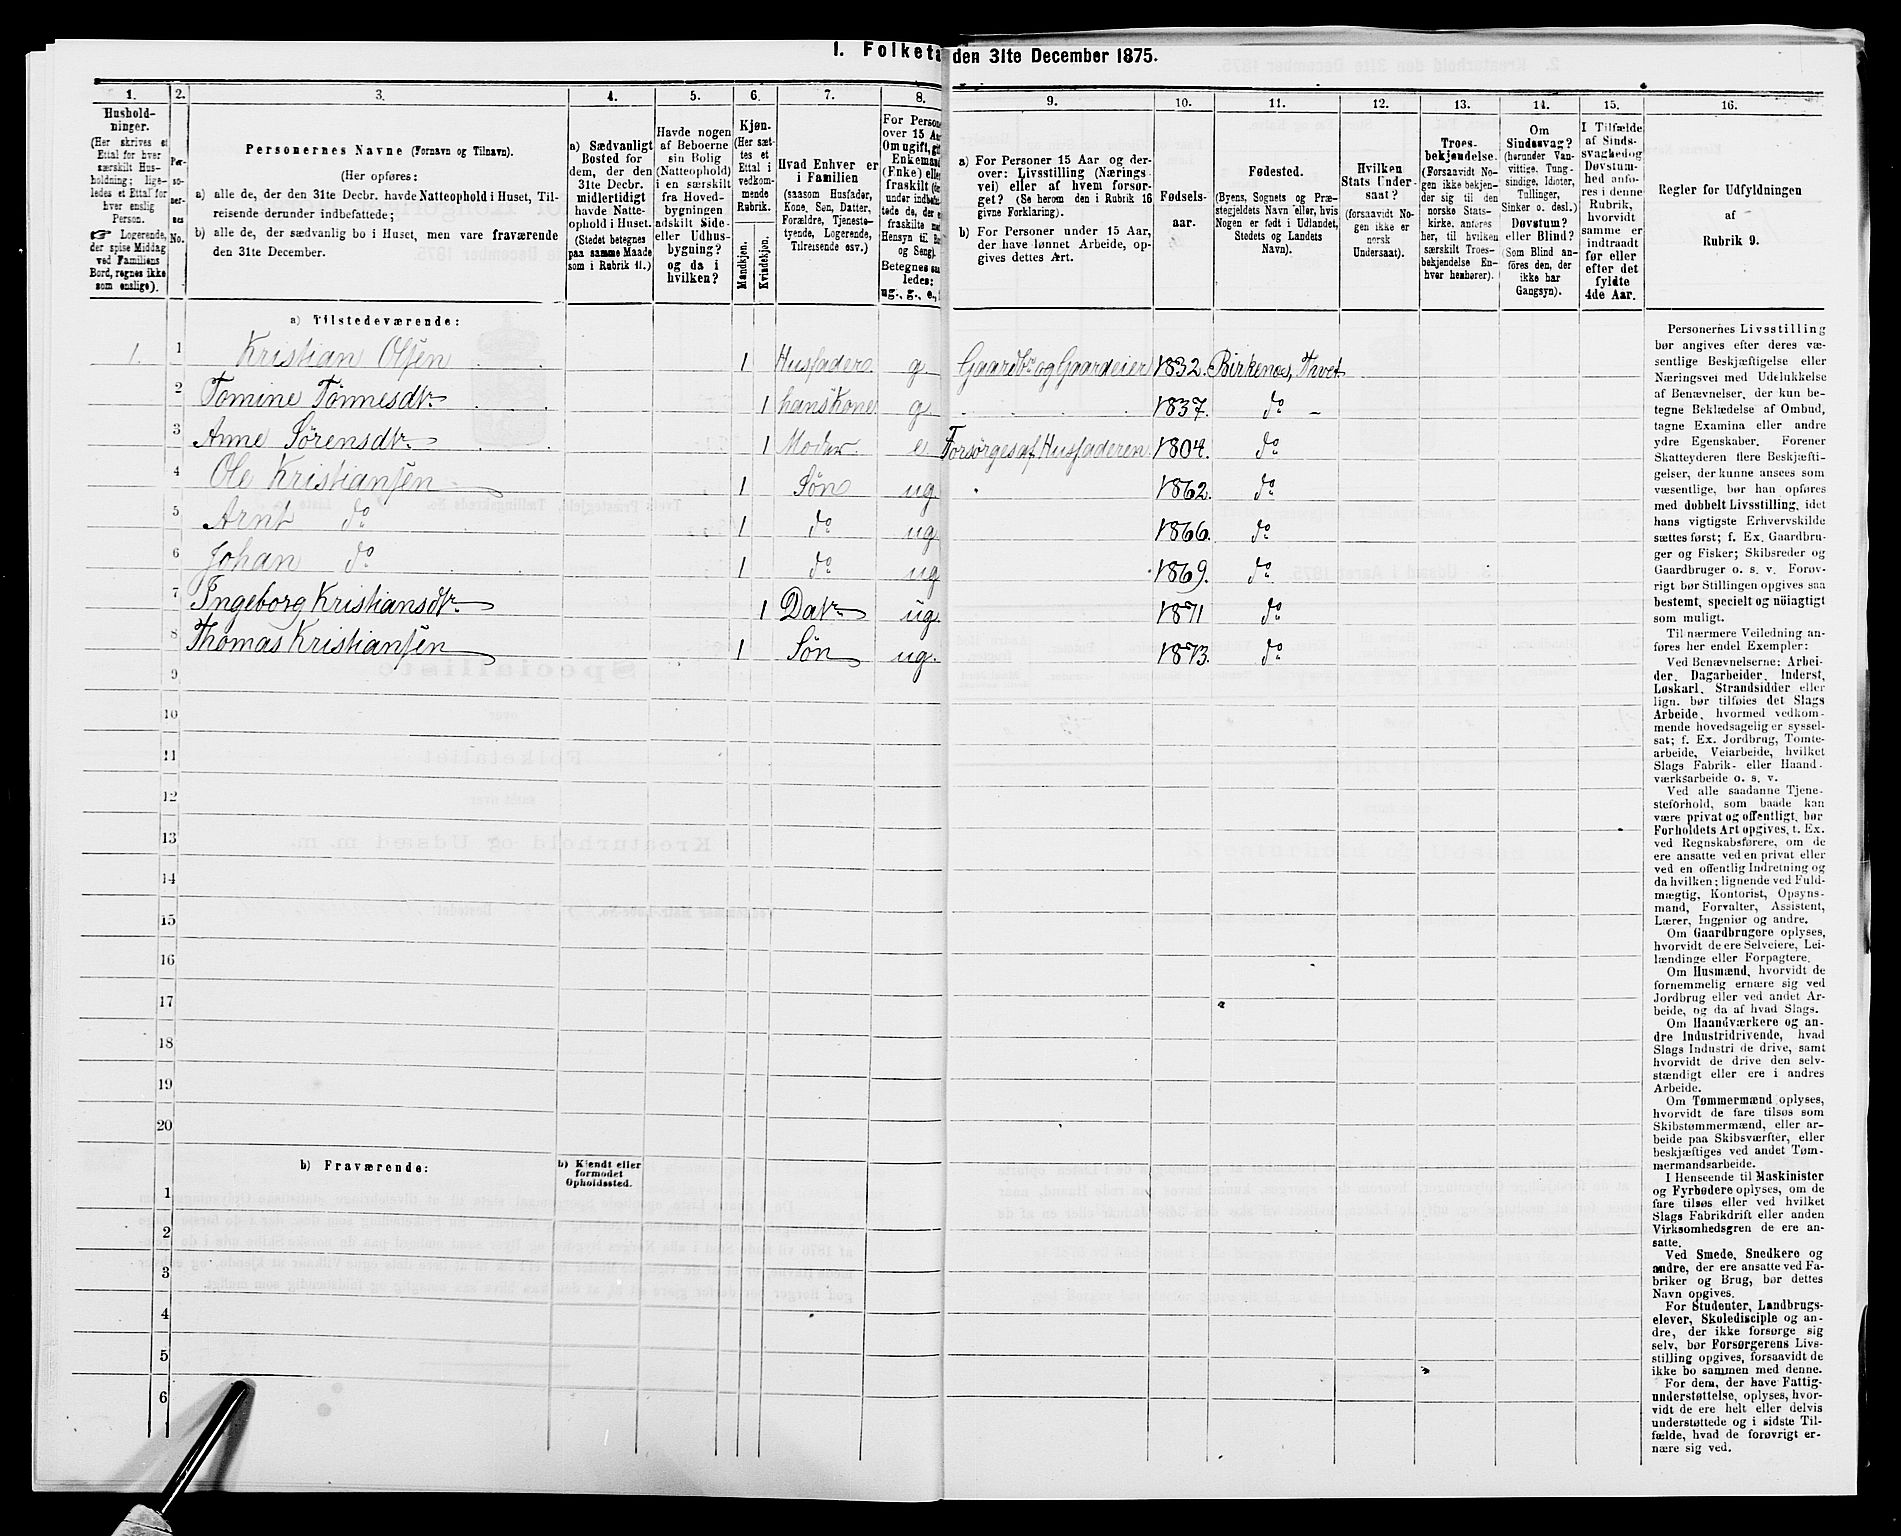 1. Folketa den 31te December 1875.
1. 2. 3. 4. 5. 6. 7. 8. 9. 10. 11. 12. 13. 14. 15. 16.
Hushold-
ninger.
(Her skrives et
Ettal for hver
særskilt Hus-
holdning; lige-
ledes et Ettal for
hver enslig
Person.
☞ Logerende,
der spise Middag
ved Familiens
Bord, regnes ikke
som enslige).
Per-
so-
ner-
nes
No.
Personernes Navne (Fornavn og Tilnavn).
(Her opføres:
a) alle de, der den 31te Decbr. havde Natteophold i Huset, Til-
reisende derunder indbefattede;
b) alle de, der sædvanlig bo i Huset, men vare fraværende
den 31te December.
a) Sædvanligt
Bosted for
dem, der den
31te Decbr.
midlertidigt
havde Natte-
ophold i Huset.
(Stedet betegnes
paa samme Maade
som i Rubrik 11.)
Havde nogen
af Beboerne
sin Bolig
(Natteophold)
i en særskilt
fra Hoved-
bygningen
adskilt Side-
eller Udhus-
bygning?
og da i
hvilken?
Kjøn.
(Her sæt-
tes et
Ettal i
vedkom-
mende
Rubrik.
Mandkjøn.
Kvindekjøn.
Hvad Enhver er
i Familien
(saasom Husfader,
Kone, Søn, Datter,
Forældre, Tjeneste-
tyende, Logerende,
Tilreisende osv.)
For Person
over 15 Aa
Om ugift, gi
Enkemand
(Enke) elle
fraskilt (
under indbe
tede de, der e
fraskilte m
Hensyn til Bo
og Seng).
Betegnes saa
ledes:
ug., g., e.,
a) For Personer 15 Aar og der-
over: Livsstilling (Nærings-
vei) eller af hvem forsør-
get? (Se herom den i Rubrik 16
givne Forklaring).
b) For Personer under 15 Aar,
der have lønnet Arbeide, op-
gives dettes Art.
Fødsels-
aar.
Fødested.
(Byens, Sognets og Præ-
stegjeldets Navn eller, hvis
Nogen er født i Udlandet,
Stedets og Landets
Navn).
Hvilken
Stats Under-
saat?
(forsaavidt No-
gen ikke er
norsk
Undersaat).
Troes-
bekjendelse.
(Forsaavidt No-
gen ikke bekjen-
der sig til den
norske Stats-
kirke, anføres
her, til hvilken
særskilt Troes-
bekjendelse En-
hver henhører).
Om
Sindssvag?
(herunder Van-
vittige, Tung-
sindige, Idioter,
Tullinger,
Sinker o. desl.)
Døvstum?
eller Blind?
(Som Blind an-
føres den, der
ikke har
Gangsyn).
I Tilfælde
af Sinds-
svaghed og
Døvstum-
hed anfø-
res i denne
Rubrik,
hvorvidt
samme er
indtraadt
før eller
efter det
fyldte
4de Aar.
Regler for Udfyldningen
af
Rubrik 9.
a) Tilstedeværende:
1. 1 Kristian Olsen 1 Husfader g Gaardbr og Gaardeier 1832. Birkenæs, Tvet
2 Tomine Tønnesdtr. 1 hans Kone g 1837. do
3 Anne Sørensdtr. 1 Moder e Forsørges af Husfaderen 1804. do
4 Ole Kristiansen 1 Søn ug 1862. do
5 Arnt do 1 do ug 1866. do
6 Johan do 1 do ug 1869. do
7 Ingeborg Kristiansdtr. 1 Datr. ug 1871 do
8 Thomas Kristiansen 1 Søn ug. 1873. do
9
10
11
12
13
14
15
16
17
18
19
20
b) Fraværende:
b) Kjendt eller
formodet
Opholdssted.
1
2
3
4
5
6
Personernes Livsstilling
bør angives efter deres væ-
sentlige Beskjæftigelse eller
Næringsvei med Udelukkelse
af Benævnelser, der kun be-
tegne Beklædelse af Ombud,
tagne Examina eller andre
ydre Egenskaber. Forener
Skatteyderen flere Beskjæfti-
gelser, der kunne ansees som
væsentlige, bør han opføres
med dobbelt Livsstilling, idet
hans vigtigste Erhvervskilde
sættes først; f. Ex. Gaardbru-
ger og Fisker; Skibsreder og
Gaardbruger o. s. v. Forøv-
rigt bør Stillingen opgives saa
bestemt, specielt og nöiagtigt
som muligt.
Til nærmere Veiledning an-
føres her endel Exempler:
Ved Benævnelserne: Arbei-
der, Dagarbeider, Inderst,
Løskarl, Strandsidder eller
lign. bør tilføies det Slags
Arbeide, hvormed vedkom-
mende hovedsagelig er syssel-
sat; f. Ex. Jordbrug, Tomte-
arbeide, Veiarbeide, hvilket
Slags Fabrik- eller Haand-
værksarbeide o. s. v.
Ved alle saadanne Tjene-
steforhold, som baade kan
være privat og offentligt, bør
Forholdets Art opgives, t. Ex.
ved Regnskabsførere, om de
ere ansatte ved en privat eller
ved en offentlig Indretning og
da hvilken; lignende ved Fuld-
mægtig, Kontorist, Opsyns-
mand, Forvalter, Assistent,
Lærer, Ingeniør og andre.
Om Gaardbrugere oplyses,
hvorvidt de ere Selveiere, Lei-
lændinge eller Forpagtere.
Om Husmænd, hvorvidt de
fornemmelig ernære sig ved
Jordbrug eller ved andet Ar-
beide, og da af hvad Slags.
Om Haandværkere og an-
dre Industridrivende, hvad
Slags Industri de drive, samt
hvorvidt de drive den selv-
stændigt eller ere i andres
Arbeide.
Om Tømmermænd oplyses,
hvorvidt de fare tilsøs som
Skibstømmermænd, eller ar-
beide paa Skibsværfter, eller
beskjæftiges ved andet Tøm-
mermandsarbeide.
I Henseende til Maskinister
og Fyrbødere oplyses, om de
fare tilsøs eller ved hvilket
Slags Fabrikdrift eller anden
Virksomhedsgren de ere an-
satte.
Ved Smede, Snedkere og
andre, der ere ansatte ved Fa-
briker og Brug, bør dettes
Navn opgives.
For Studenter, Landbrugs-
elever, Skoledisciple og an-
dre, der ikke forsørge sig
selv, bør Forsørgerens Livs-
stilling opgives, forsaavidt de
ikke bo sammen med denne.
For dem, der have Fattig-
understøttelse, oplyses, hvor-
vidt de ere helt eller delvis
understøttede og i sidste Til-
fælde, hvad de forøvrigt er-
nære sig ved.